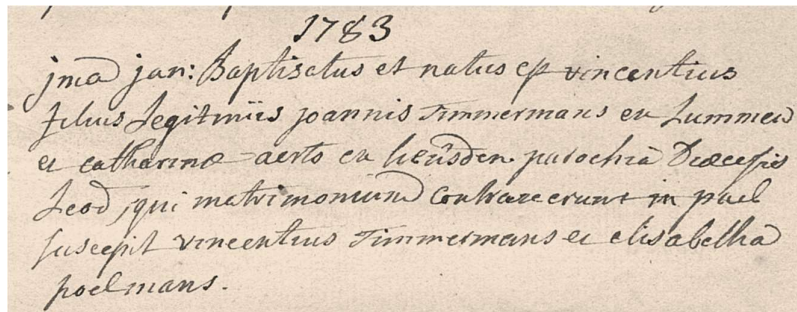 1783
jma jan: Baptisatus et natus est vincentius
filius Legitimus joannis Timmermans ex Lummen
et catharinæ aerts ex heusden parochia Diœcesis
Leod, qui matrimonium contraxerunt in pael
suscepit vincentius Timmermans et elisabetha
poelmans.